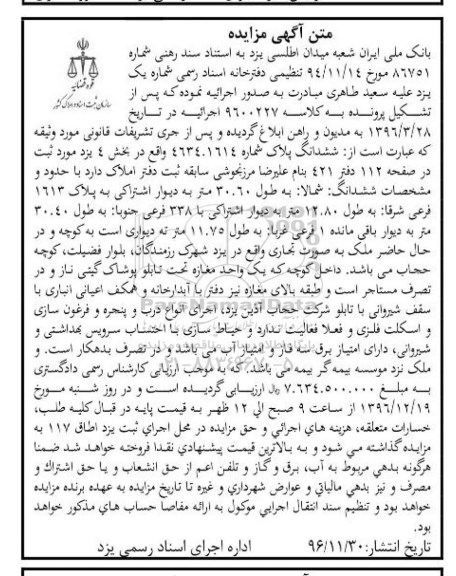 متن آگهی مزایده
بانک ملی ایران شعبه میدان اطلسی یزد به استناد سند رهنی شماره
۸۶۷۵۱ مورخ ۹۴/۱۱/۱۴ تنظیمی دفترخانه اسناد رسمی شماره یک
یزد علیه سعید طاهری مبادرت به صدور اجرائیه نموده که پس از
تشکیل پرونده به کلاسه ۹۶۰۰۲۲۷ اجرائیه در تاریخ
قوه قضائیه
سازمان ثبت اسناد و املاک کشور
۱۳۹۶/۳/۲۸ به مدیون و راهن ابلاغ گردیده و پس از جری تشریفات قانونی مورد وثیقه
که عبارت است از: ششدانگ پلاک شماره ۴۶۳۴.۱۶۱۴ واقع در بخش ۴ یزد مورد ثبت
در صفحه ۱۱۲ دفتر ۴۲۱ بنام علیرضا مرزنخوشی سابقه ثبت دفتر املاک دارد با حدود و
مشخصات ششدانگ: شمالا: به طول ۳۰.۶۰ متر به دیوار اشتراکی به پلاک ۱۶۱۳
فرعی شرقا: به طول ۱۴.۸۰ متر به دیوار اشتراکی با ۳۳۸ فرعی جنوبا: به طول ۳۰.۴۰
متر به دیوار باقی مانده ۱ فرعی غربا: به طول ۱۱.۷۵ متر که دیواری است به کوچه و در
حال حاضر ملک به صورت تجاری واقع در یزد شهرک رزمندگان، بلوار فضیلت، کوچه
حجاب می باشد. داخل کوچه که یک واحد مغازه تحت تابلو پوشاک گیتی ناز و در
تصرف مستاجر است و طبقه بالای مغازه نیز دفتر با آبدارخانه و همکف اعیانی انباری با
سقف شیروانی با تابلو شرکت حجاب آذین یزد، اجرای انواع درب و پنجره و فرغون سازی
و اسکلت فلزی و فعلا فعالیت ندارد و حیاط سازی با احتساب سرویس بهداشتی و
شیروانی، دارای امتیاز برق سه فاز و امتیاز آب می باشد و در تصرف بدهکار است. و
ملک نزد موسسه بیمه گر بیمه می باشد. که به موجب ارزیابی کارشناس رسمی دادگستری
به مبلغ ۷.۶۳۴.۵۰۰.۰۰۰ ریال ارزیابی گردیده است و در روز شنبه مورخ
۱۳۹۶/۱۲/۱۹ از ساعت ۹ صبح الی ۱۲ ظهر به قیمت پایه در قبال کلیه طلب،
خسارات متعلقه، هزینه های اجرائی و حق مزایده در محل اجرای ثبت یزد اطاق ۱۱۷ به
مزایده گذاشته می شود و به بالاترین قیمت پیشنهادی نقدا فروخته خواهد شد ضمنا
هرگونه بدهی مربوط به آب، برق و گاز و تلفن اعم از حق انشعاب و یا حق اشتراک و
مصرف و نیز بدهی مالیاتی و عوارض شهرداری و غیره تا تاریخ مزایده به عهده برنده مزایده
خواهد بود و تنظیم سند انتقال اجرایی موکول به ارائه مفاصا حساب های مذکور خواهد
بود.
تاریخ انتشار: ۹۶/۱۱/۳۰ اداره اجرای اسناد رسمی یزد